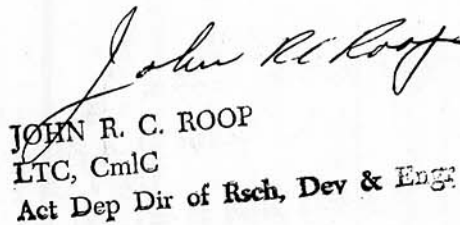 John R C Roop
JOHN R. C. ROOP
LTC, CmlC
Act Dep Dir of Rsch, Dev & Engr